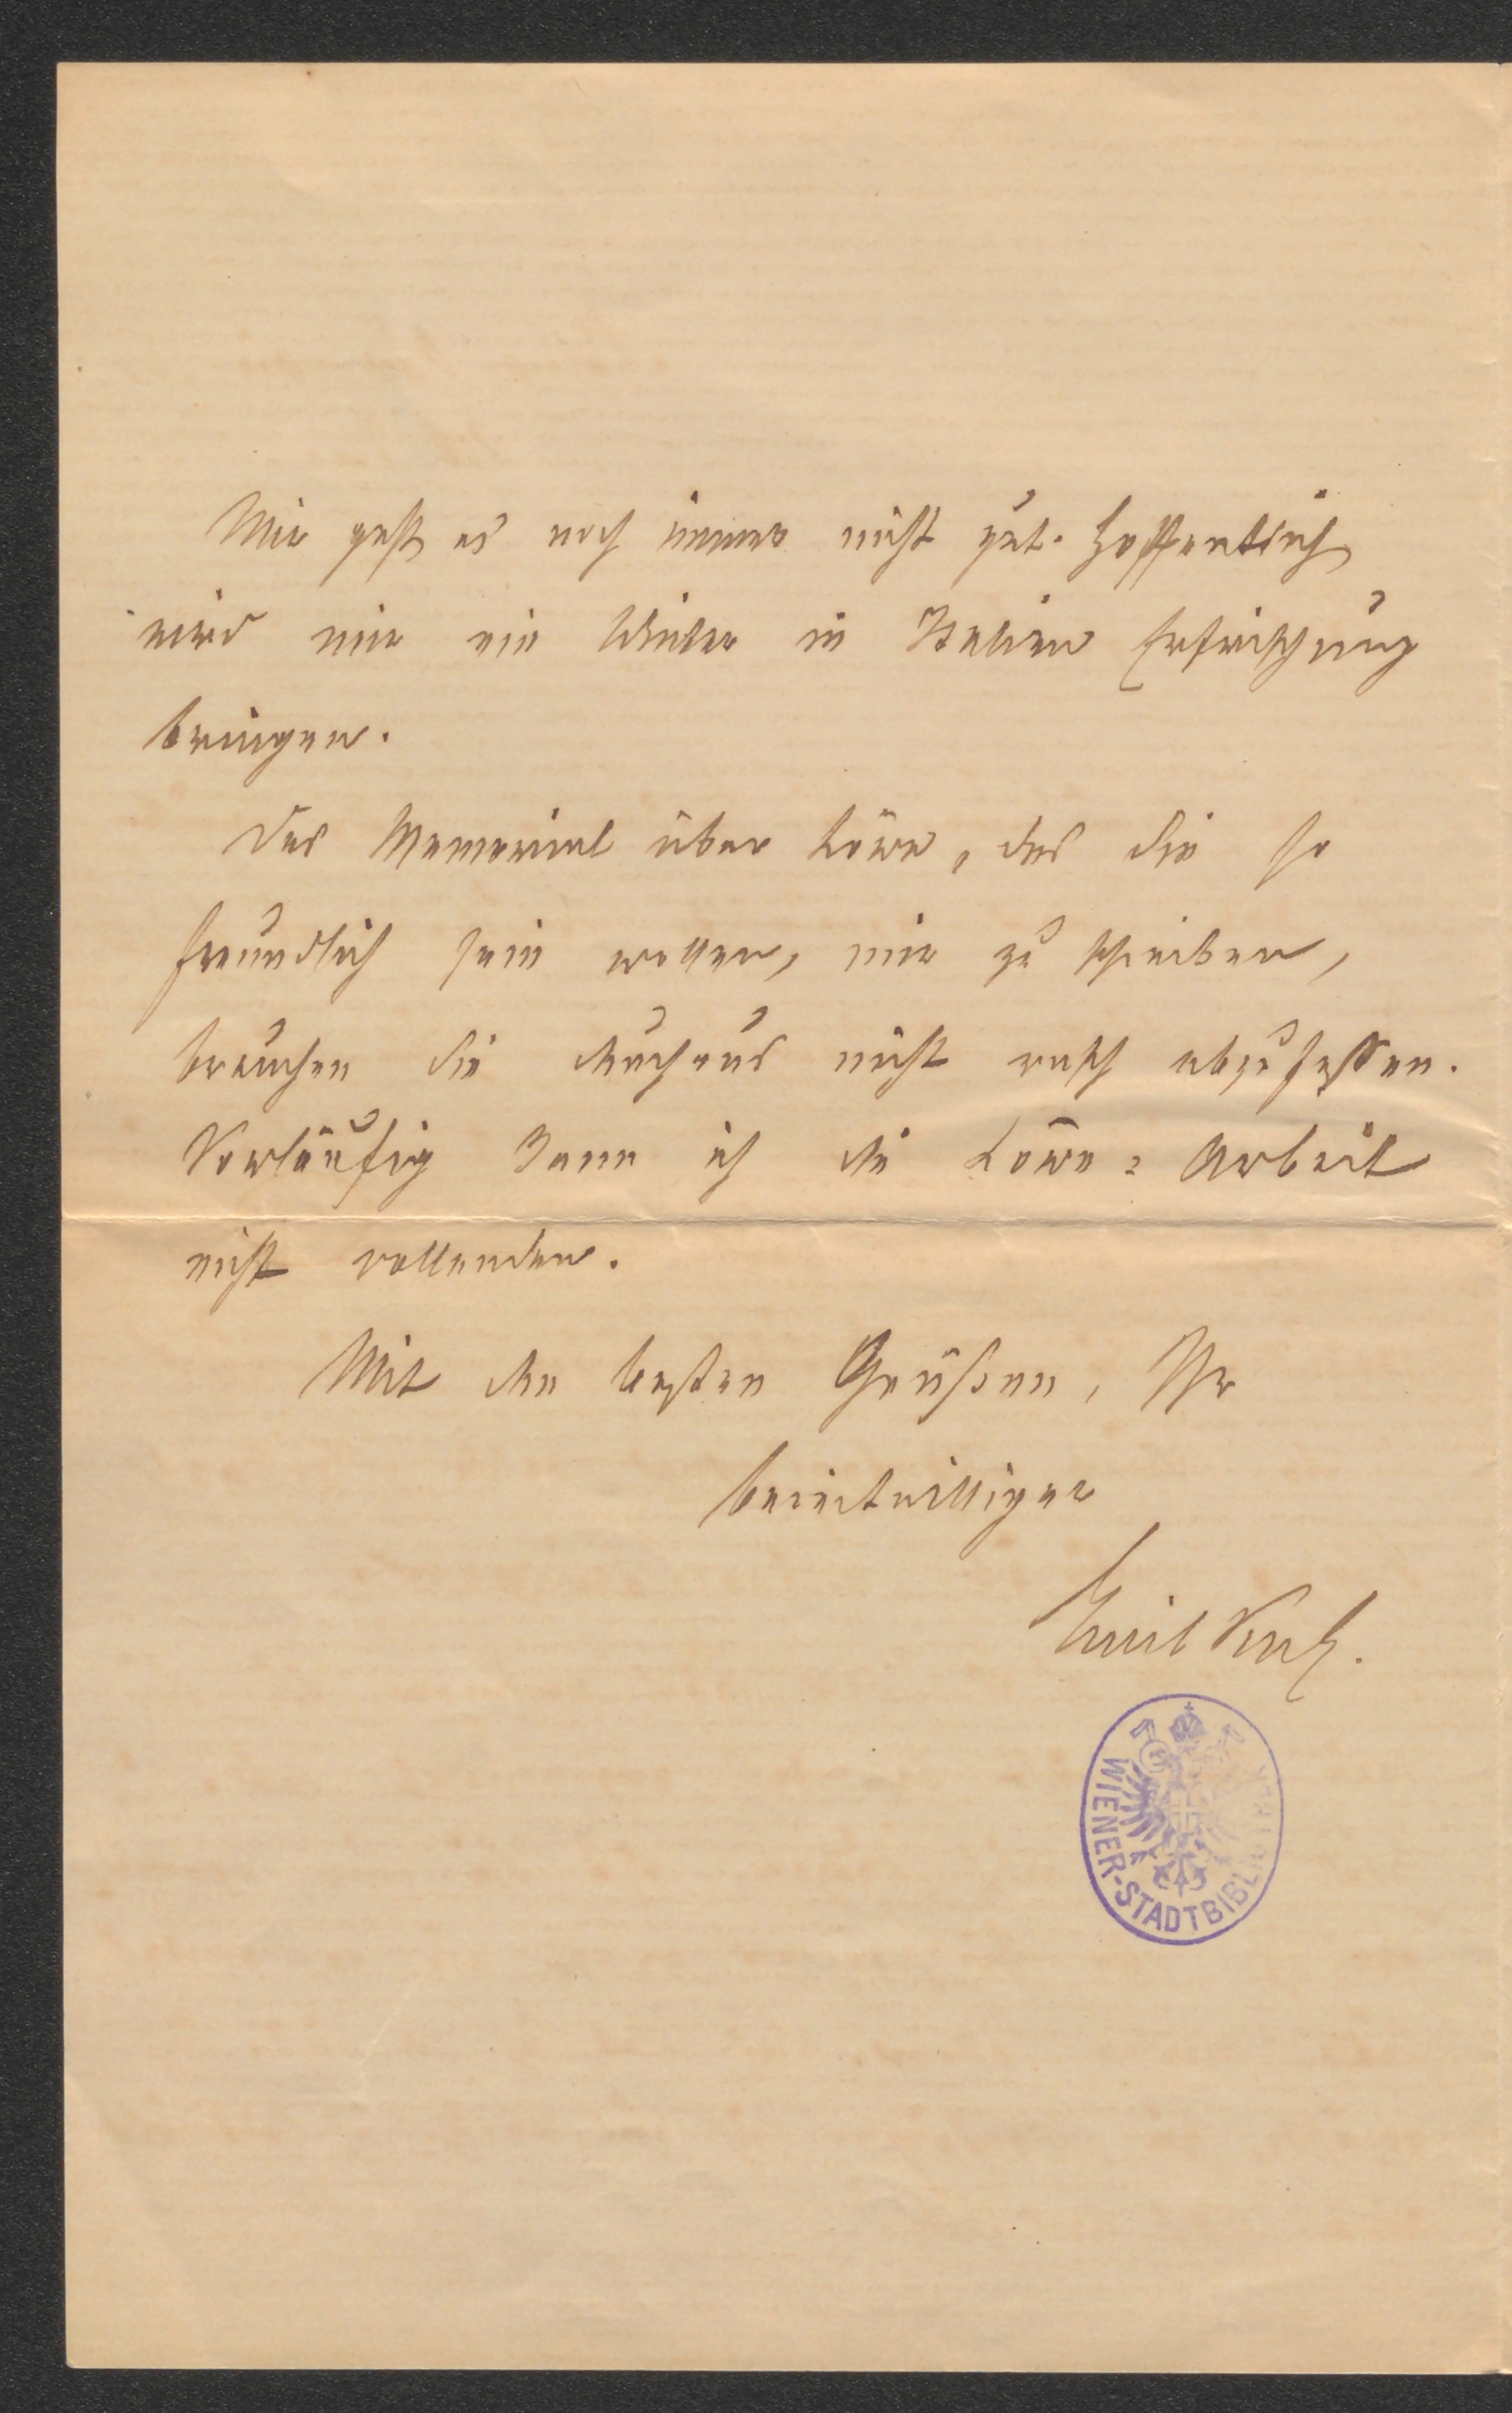 Mir geht es noch immer nicht gut. Hoffentlich
wird mir ein Winter in Italien Erfrischung
bringen.
Das Memorial über Löwe, das Sie so
freundlich sein wollen, mir zu schreiben,
brauchen Sie durchaus nicht rasch abzufassen.
Vorläufig kann ich die Löwe-Arbeit
nicht vollenden.
Mit den besten Grüßen, Ihr
bereitwilliger
Emil Kuh.
WIENER-STADTBIBLIOTHEK